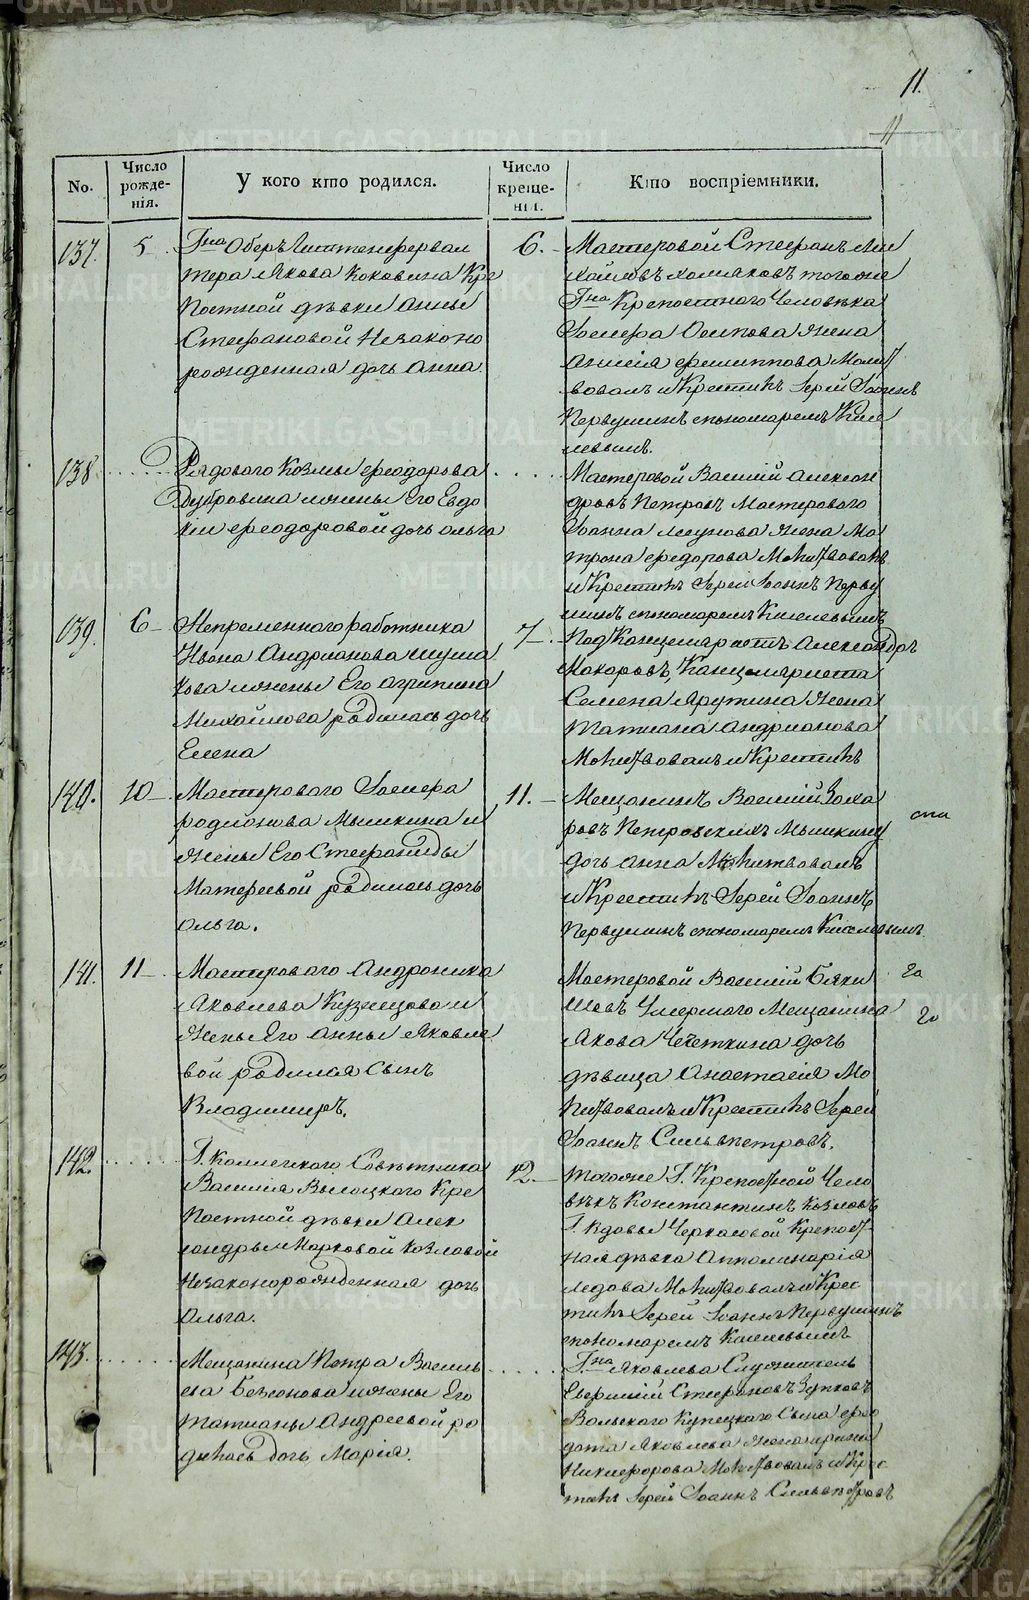 11.
11
No.
Число рожде-нія.
У кого кто родился.
Число креще-нія.
Кто воспріемники.
137. 5.
Гна Оберъ
тера Якова Коковина Кре
постной дѣвки Анны
Стефановой Незаконо
рожденная дочь Анна.
6.
Мастеровой Стефанъ Ми
хайловъ тогоже
Гна Крепостного Человѣка
Іосифа Осипова Жена
филиппова Молит
вовалъ и Крестилъ Іерей Іоаннъ
Первушинъ спономаремъ Кисе
левымъ.
138.
Рядового Козмы Феодорова
Дубровина и жены Его Евдо
кіи Феодоровой дочь Ольга
Мастеровой Василій Алексан
дровъ Петровъ Мастерового
Іоанна Жена Ма
трона Федорова Молитвовалъ
и Крестилъ Іерей Іоаннъ Перву
шинъ спономаремъ Киселевымъ
139. 6
Непременного работника
Ивана Андріанова Шума
кова и жены Его Агрипина
Михайлова родилась дочь
Елена
7.
Под Канцеляристъ Александръ
Макаровъ, Канцеляриста
Семена Ярутина Жена
Татиана Андрианова
Молитвовалъ и Крестилъ
140. 10
Мастерового Іосифа
родіонова Мышкина и
жены Его Стефаниды
Матфеевой родилась дочь
Ольга.
11.
Мещанинъ Василій Заха
ровъ Петровскихъ Мышкину
дочь Анна Молитвовалъ
и Крестилъ Іерей Іоаннъ
Первушинъ спономаремъ Киселевымъ
141. 11
Мастерового Андроника
Яковлева Кузнецова и
жены Его Анны Яковле
вой родился сынъ
Владимиръ.
Мастеровой Василій Бяки
шевъ Умершаго Мещанина
Якова Чечеткина дочь
дѣвица Анастасія Мо
литвовалъ и Крестилъ Іерей
Іоаннъ Сильвестровъ.
142.
Г. Коллежского Совѣтника
Василія Высоцкого Кре
постной дѣвки Алек
сандры Марковой Козловой
Незаконорожденная дочь
Ольга.
12.
Тогоже Г. Крепостной Чело
вѣкъ Константинъ Козловъ
Г. вдовы Черкасовой Крепост
ная дѣвка Апполинарія
Молитвовалъ и Крес
тилъ Іерей Іоаннъ Первушинъ
спономаремъ Киселевымъ
143.
Мещанина Петра Василь
ева и жены Его
Татианы Андреевой ро
дилась дочь Марія.
Гна Яковлева Служитель
Стефановъ
Вольского Купецкаго Сына Фео
дота Яковлева Жена Ирина
Никифорова Молитвовалъ и Крес
тилъ Іерей Іоаннъ Сильвестровъ